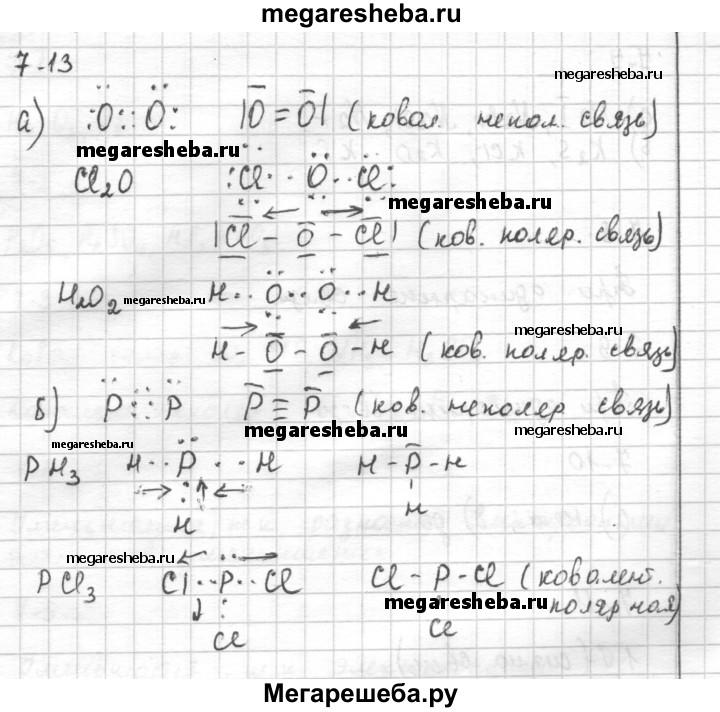 megaresheba.ru
7-13
megaresheba.ru
а) :Ö::Ö: |O̅=O̅| (ковал. непол. связь)
megaresheba.ru
Cl₂O :Cl··O··Cl:
megaresheba.ru
|Cl – O – Cl| (ков. поляр. связь)
H₂O₂ megaresheba.ru H··O··O··H
megaresheba.ru
H – O – O – H (ков. поляр. связь)
б) P⋮⋮P P̅≡P̅ (ков. неполяр связь)
megaresheba.ru megaresheba.ru megaresheba.ru
PH₃ H··P··H H–P̅–H
H H
megaresheba.ru
PCl₃ Cl··P··Cl Cl – P – Cl (ковалент.
megaresheba.ru полярная)
Cl Cl
Мегарешеба.ру